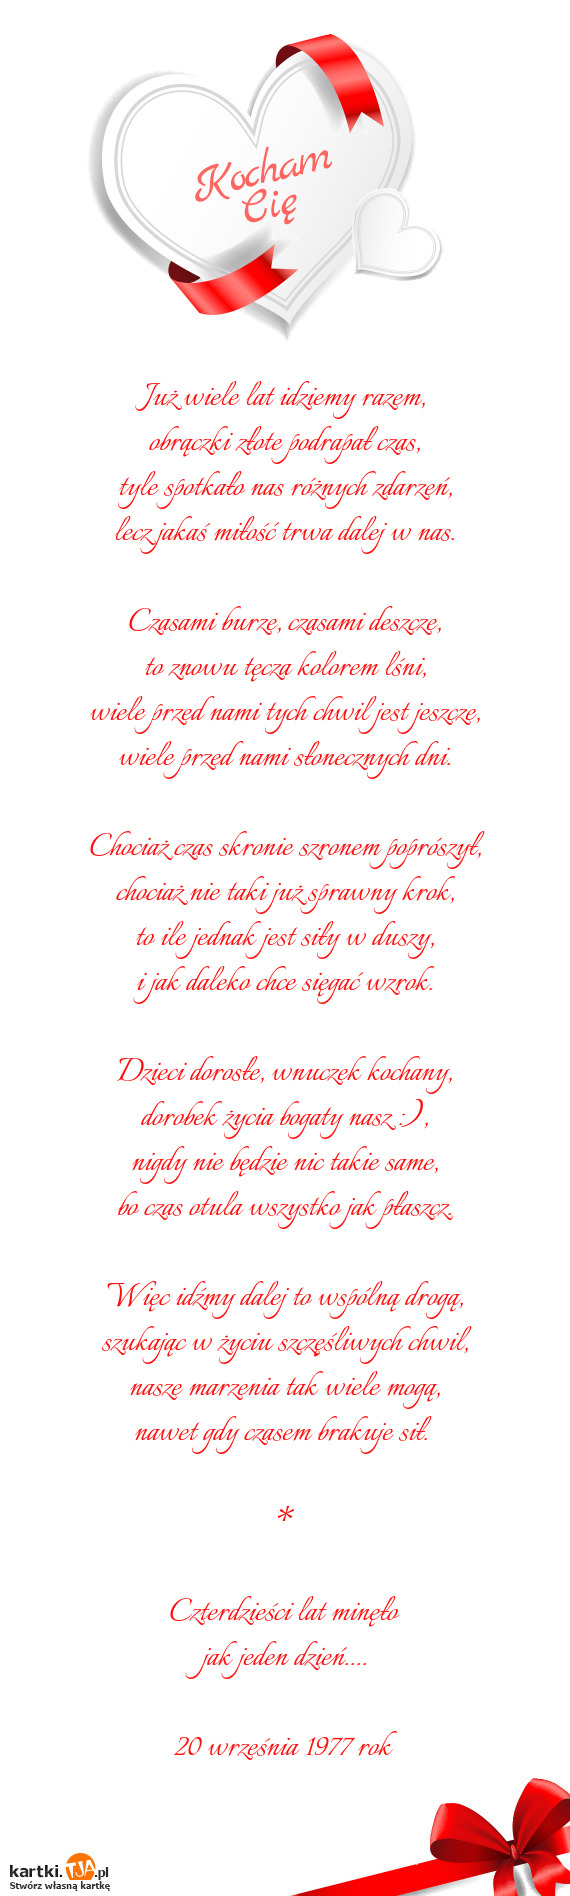 Kocham
Cię
Już wiele lat idziemy razem,
obrączki złote podrapał czas,
tyle spotkało nas różnych zdarzeń,
lecz jakaś miłość trwa dalej w nas.
Czasami burze, czasami deszcze,
to znowu tęcza kolorem lśni,
wiele przed nami tych chwil jest jeszcze,
wiele przed nami słonecznych dni.
Chociaż czas skronie szronem poprószył,
chociaż nie taki już sprawny krok,
to ile jednak jest siły w duszy,
i jak daleko chce sięgać wzrok.
Dzieci dorosłe, wnuczek kochany,
dorobek życia bogaty nasz :) ,
nigdy nie będzie nic takie same,
bo czas otula wszystko jak płaszcz.
Więc idźmy dalej to wspólną drogą,
szukając w życiu szczęśliwych chwil,
nasze marzenia tak wiele mogą,
nawet gdy czasem brakuje sił.
*
Czterdzieści lat minęło
jak jeden dzień....
20 września 1977 rok
kartki.TJA.pl
Stwórz własną kartkę